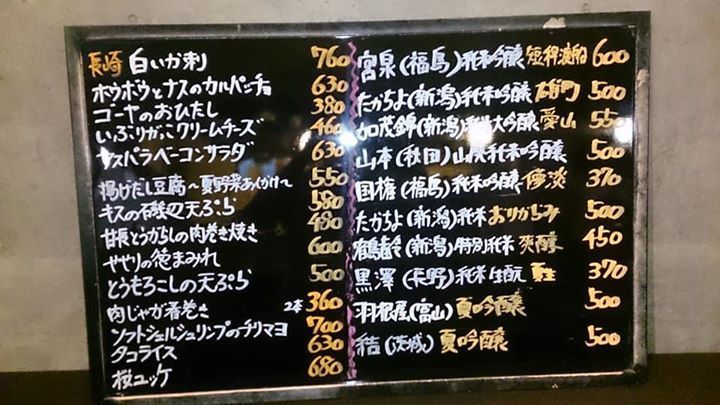 長崎 白いか刺 760
ホウボウとナスのカルパッチョ 630
ゴーヤのおひたし 380
いぶりがっこクリームチーズ 460
アスパラベーコンサラダ 630
揚げだし豆腐〜夏野菜あんかけ〜 550
キスの磯辺天ぷら 580
甘長とうがらしの肉巻き焼き 480
せせりの葱まみれ 600
とうもろこしの天ぷら 500
肉じゃが春巻き 2本 360
ソフトシェルシュリンプのチリマヨ 700
タコライス 630
桜ユッケ 680
宮泉(福島)純米吟醸 短稈渡船 600
たかちよ(新潟)純米吟醸 雄町 500
加茂錦(新潟)純米大吟醸 愛山 550
山本(秋田)山廃純米吟醸 500
国権(福島)純米吟醸 370
たかちよ(新潟)純米 おりがらみ 500
鶴齢(新潟)特別純米 爽醇 450
黒澤(長野)純米生酛 370
羽根屋(富山)夏吟醸 500
結(茨城)夏吟醸 500